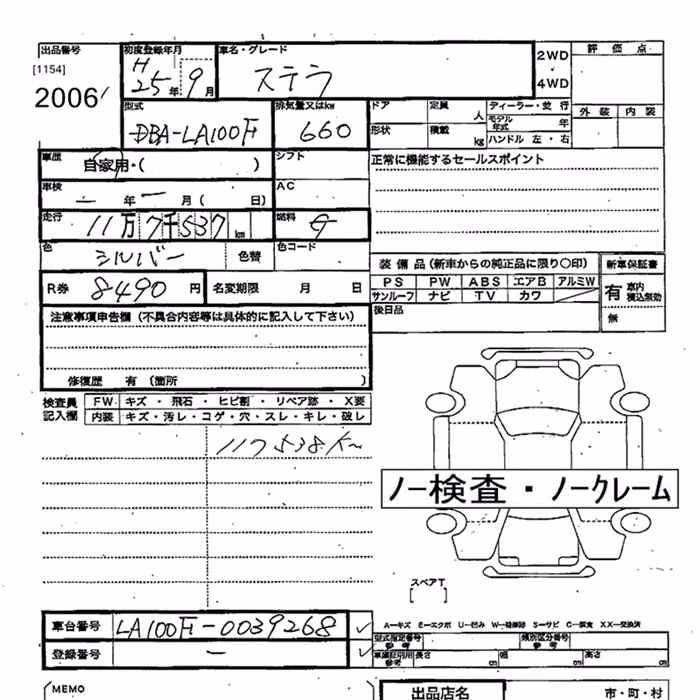 出品番号 初度登録年月 車名・グレード 2WD 評価点
[1154] H ・
25年 9月 ステラ 4WD
2006
型式 排気量又はkw ドア 定員 人 ディーラー・並行 外装 内装
DBA-LA100F 660 形状 積載 kg モデル年式 年
ハンドル 左・右
車歴 自家用・( ) シフト 正常に機能するセールスポイント
車検 ー 年 ー 月( 日) AC
走行 11万7千537 km 燃料 G
色 シルバー 色替 色コード
装備品(新車からの純正品に限り〇印) 新車保証書
R券 8490 円 名変期限 月 日 PS PW ABS エアB アルミW 有 車内 積込無効
サンルーフ ナビ TV カワ
後日品 無
注意事項申告欄(不具合内容等は具体的に記入して下さい)
修復歴 有(箇所 )
検査員 FW キズ・飛石・ヒビ割・リペア跡・X要
記入欄 内装 キズ・汚レ・コゲ・穴・スレ・キレ・破レ
117538K
ノー検査・ノークレーム
スペアT
[ ]
車台番号 LA100F-0039268 ✓
A―キズ E―エクボ U―凹み W―補修跡 S―サビ C―腐食 XX―交換済
型式指定番号 参考 類別区分番号 参考
登録番号 ー ✓ 車庫証明用 参考 長さ cm 幅 cm 高さ cm
MEMO 出品店名 市・町・村